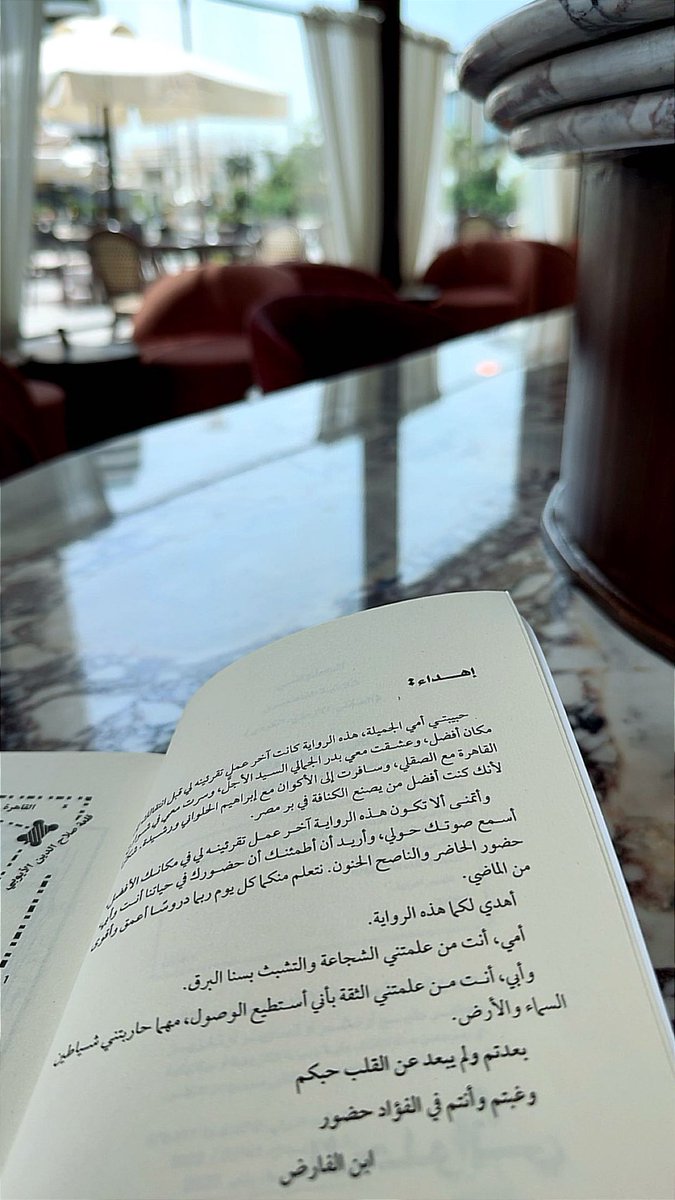 إهـــداء:
حبيبتي أمي الجميلة، هذه الرواية كانت آخر عمل تقرئينه لي قبل
مكان أفضل، وعشقت معي بدر الجمالي السيد الأجلّ، وسرت معي في
القاهرة مع الصقلي، وسافرت إلى الأكوان مع إبراهيم الحلواني
لأنك كنت أفضل من يصنع الكنافة في بر مصر.
وأتمنى ألا تكون هذه الرواية آخر عمل تقرئينه لي في مكانك الأفضل
أسمع صوتك حولي، وأريد أن أطمئنك أن حضورك في حياتنا أنت وأبي
حضور الحاضر والناصح الحنون. نتعلم منكما كل يوم ربما دروسًا أعمق وأقوى
من الماضي.
أهدي لكما هذه الرواية.
أمي، أنت من علمتني الشجاعة والتشبث بسنا البرق.
وأبي، أنت من علمتني الثقة بأني أستطيع الوصول، مهما حاربتني شياطين
السماء والأرض.
بعدتم ولم يبعد عن القلب حبكم
وغبتم وأنتم في الفؤاد حضور
ابن الفارض
القاهرة
قلعة صلاح الدين الأيوبي